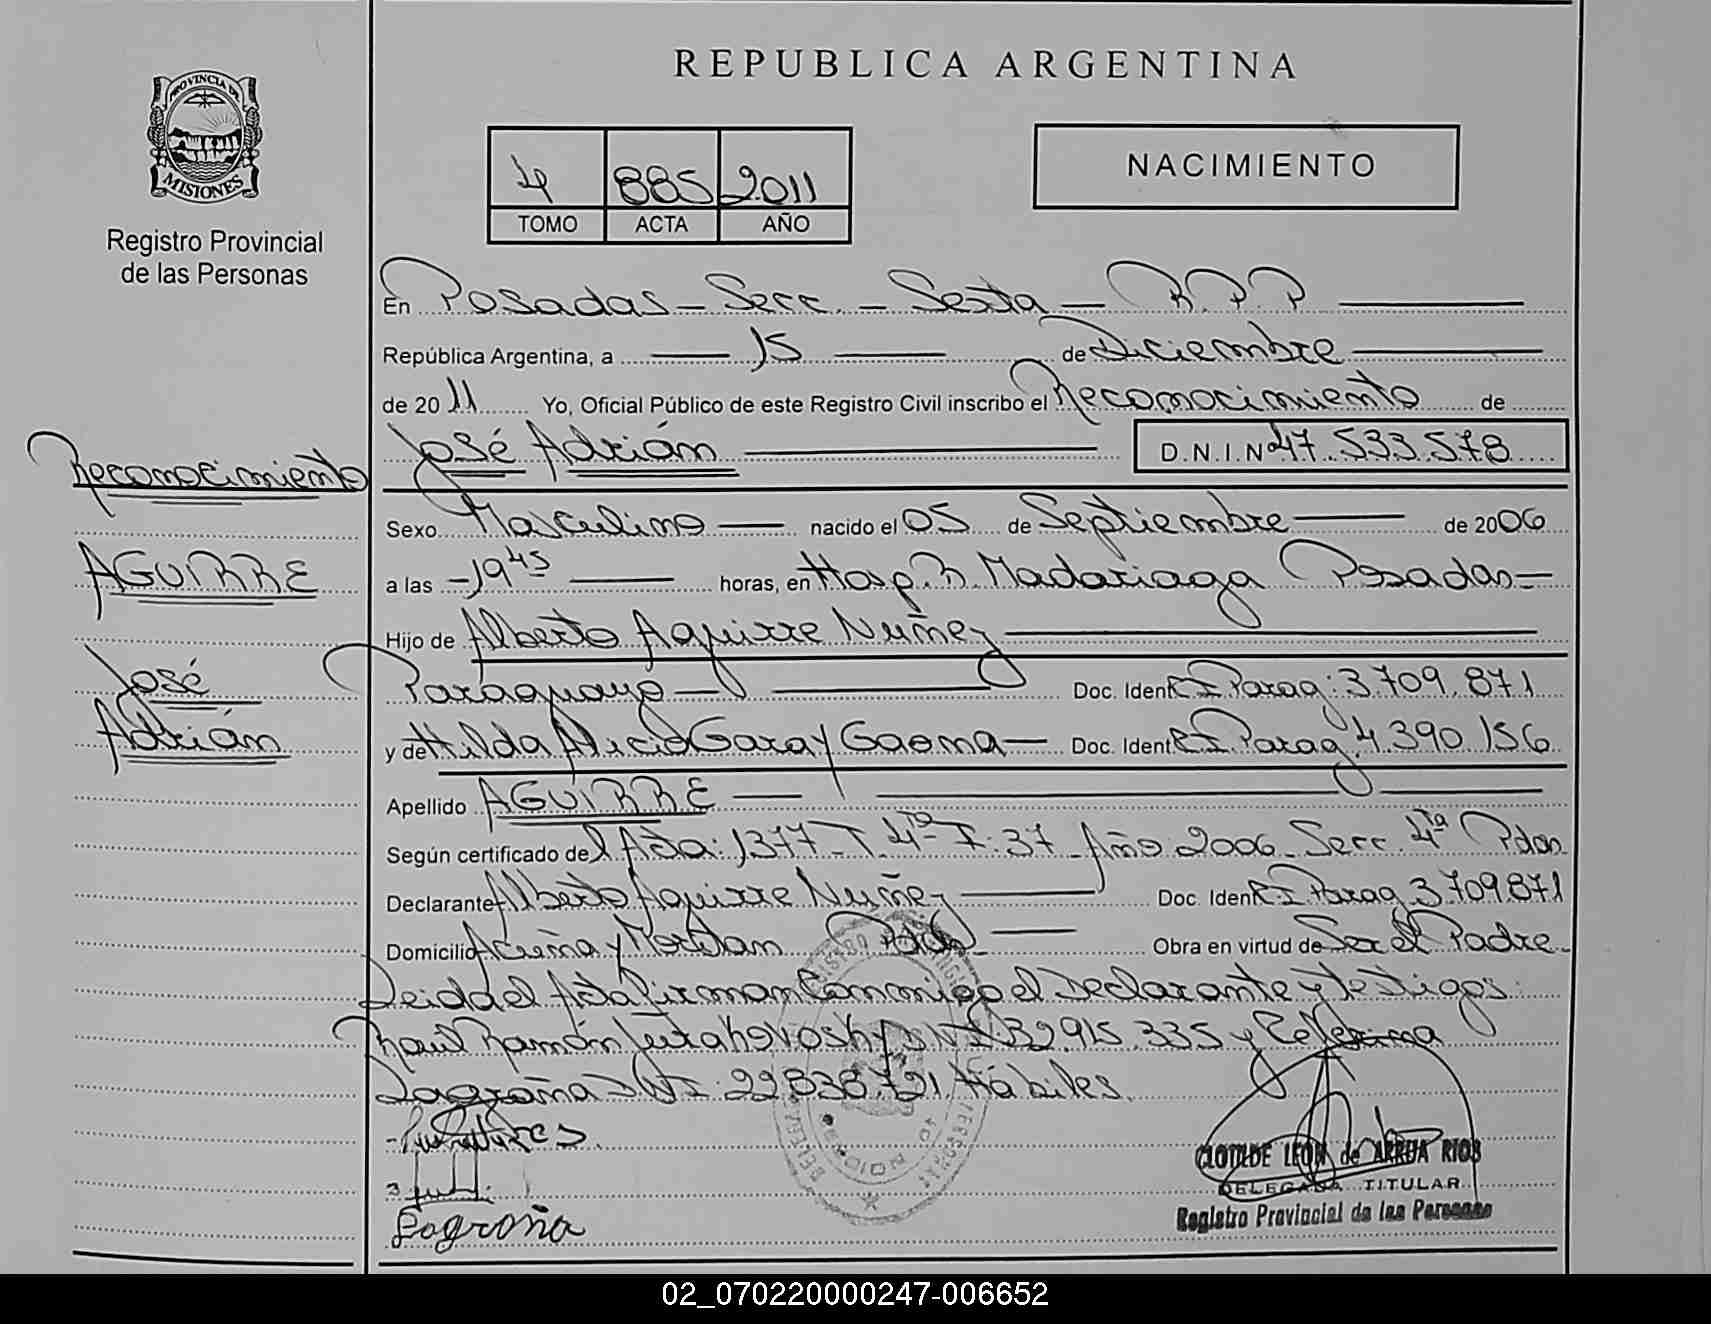 REPUBLICA ARGENTINA
PROVINCIA DE
MISIONES
Registro Provincial
de las Personas
4 885 2011
TOMO ACTA AÑO
NACIMIENTO
En Posadas - Secc. - Sexta - R.P.P.
República Argentina, a 15 de Diciembre
de 2011 Yo, Oficial Público de este Registro Civil inscribo el Reconocimiento de
José Adrián D.N.I. Nº 47.533.578
Reconocimiento
AGUIRRE
José
Adrián
Sexo Masculino nacido el 05 de Septiembre de 2006
a las 19 45 horas, en Hosp. R. Madariaga Posadas
Hijo de Alberto Aguirre Nuñez
Paraguayo Doc. Ident. C I Parag: 3.709.871
y de Hilda Alicia Garay Gaona Doc. Ident. C I Parag 4.390.156
Apellido AGUIRRE
Según certificado del Acta: 1377 - T. 4ta - F: 37 - Año 2006 - Secc. 4ta Pdas
Declarante Alberto Aguirre Nuñez Doc. Ident. C I Parag 3.709.871
Domicilio Acuña y Pdas Obra en virtud de Ser el Padre
Leida el Acta firman Conmigo el Declarante y testigos:
Raul Ramón DNI: 32.915.335 y Zefferina
Logroña DNI: 22.838.721. Hábiles.
Logroña
CLOTILDE LEON de ARRUA RIOS
DELEGADA TITULAR
Registro Provincial de las Personas
02_070220000247-006652